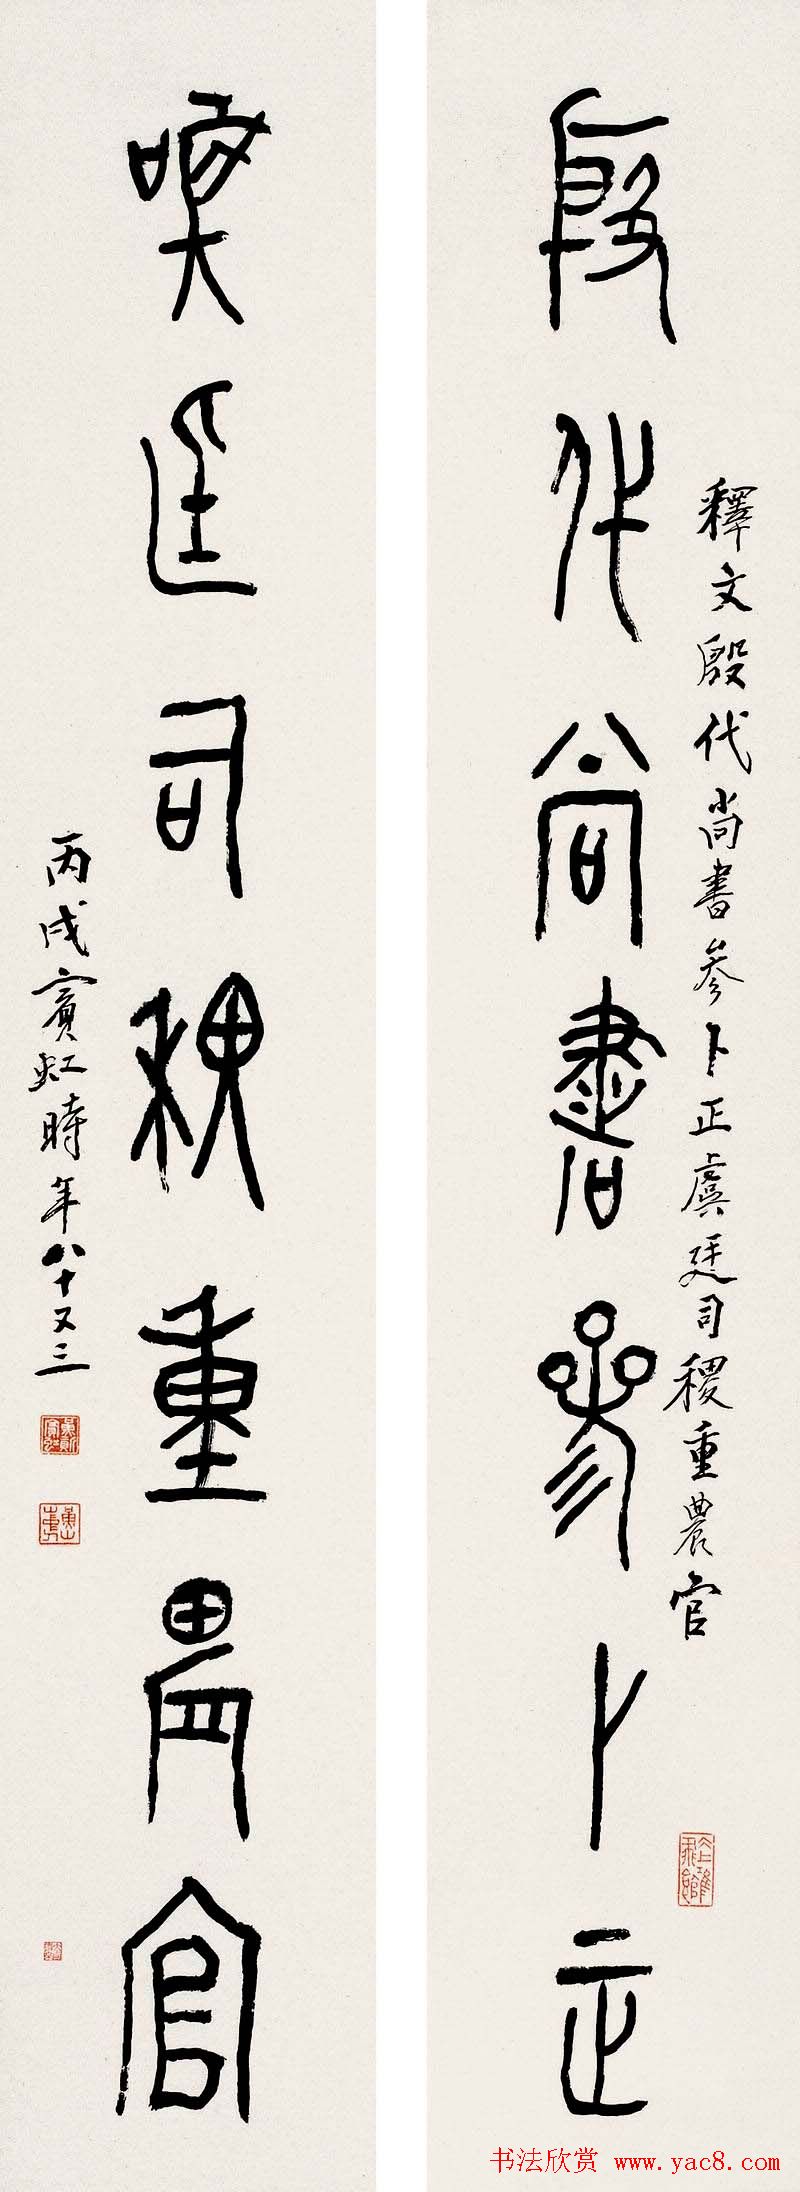 殷代尚書參卜正
釋文殷代尚書參卜正虞廷司稷重農官
虞廷司稷重農官
丙戌賓虹時年八十又三
书法欣赏 www.yac8.com